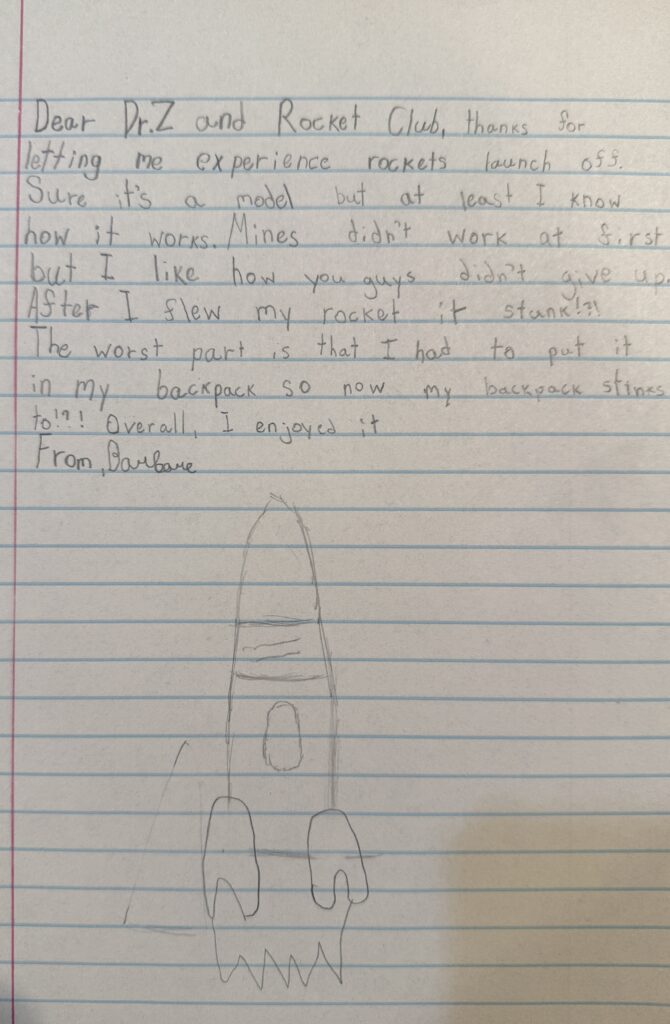 Dear Dr.Z and Rocket Club, thanks for
letting me experience rockets launch off.
Sure it's a model but at least I know
how it works. Mines didn't work at first
but I like how you guys didn't give up.
After I flew my rocket it stunk!?!
The worst part is that I had to put it
in my backpack so now my backpack stinks
to!?! Overall, I enjoyed it
From, Barbare